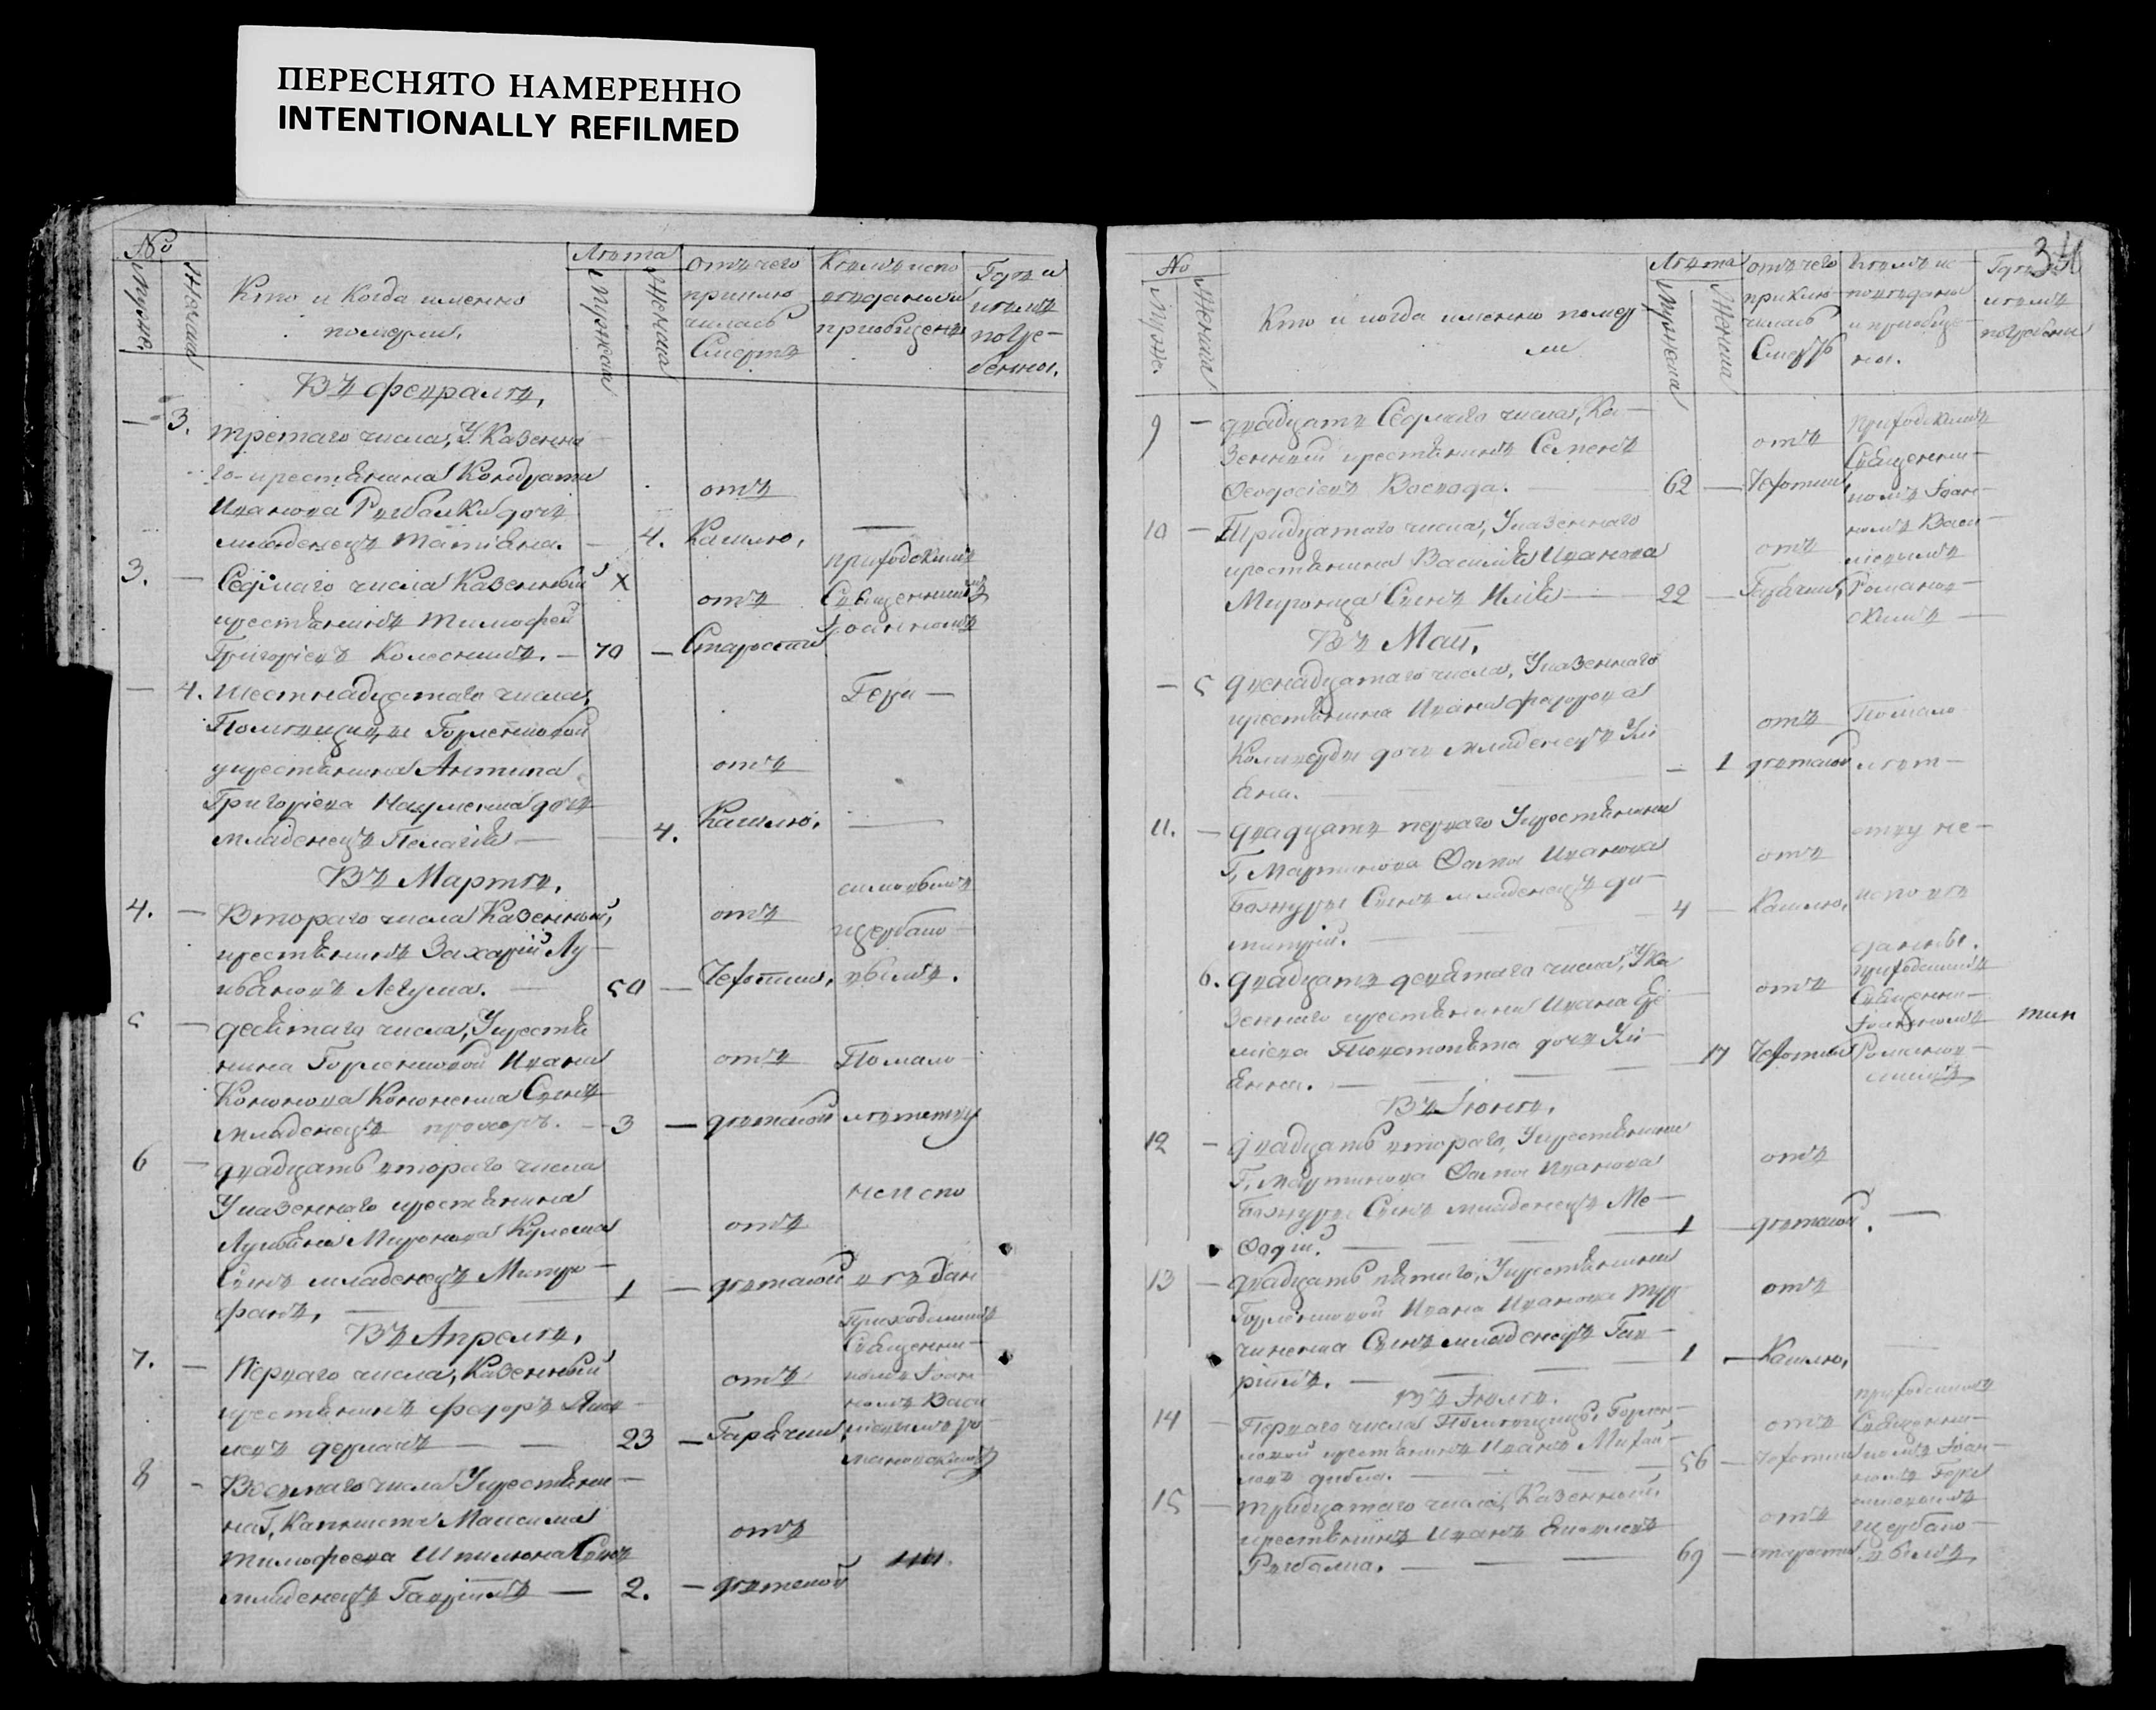 ПЕРЕСНЯТО НАМЕРЕННО
INTENTIONALLY REFILMED
34
№
Мужес.
Женска
Кто и Когда именно
померли.
Лѣта
Мужеска
Женска
отъ чего
приклю
чилась
Смерть
Кѣмъ испо
вѣданы и
приобщены
Гдѣ и
кѣмъ
погре-
бенны.
Въ февралѣ,
— 3. третаго числа, У Казенна
го крестьянина Кондрата
Иванова Рыбалки дочь
младенецъ Татіяна. — 4.
отъ
Кашлю, —
3. — Седмаго числа Казенный
крестьянинъ Тимофей
Григоріевъ Колесникъ. — 70 —
отъ
Старости
приходскимъ
Священникомъ
Іоанномъ
Гера—
симовымъ
щербако—
вымъ.
— 4. шестнадцатаго числа,
Помѣщицы Горленковой
укрестьянина Антипа
Григоріева Науменка дочь
младенецъ Пелагія — 4.
отъ
Кашлю. —
Въ Мартѣ,
4. — Втораго числа Казенный,
крестьянинъ Захарій Лу—
кьяновъ Легуша. — 50 —
отъ
Чахотки,
5 — десятаго числа, Укрестья
нина Горленковой Ивана
Кононова Кононенка Сынъ
младенецъ прохоръ. — 3 —
отъ
дѣтской
По мало
лѣтству
6 — двадцать втораго числа
Указенного крестьянина
Лукьяна Миронова Кулеша
Сынъ младенецъ Митро—
фанъ, — 1 —
отъ
дѣтской
неиспо
вѣдан
Въ Апрелѣ,
7. — Перваго числа, Казенный
крестьянинъ федоръ Яков
левъ деркачъ — 23 —
отъ
Гарячки,
Приходскимъ
Священни—
комъ Іоан—
номъ Васи
ліевымъ Ро
мановскимъ
8 — Восмаго числа Укрестьяни—
на Г, Капниста Максима
тимофеева Шпилюна Сынъ
младенецъ Гавріилъ — 2. —
отъ
дѣтской
№
Мужес.
Женска
Кто и когда именно помер
ли
Лѣта
Мужеска
Женска
отъ чего
приклю—
чилась
Смерть
кѣмъ ис—
повѣданы
и приобще—
ны.
Гдѣ и
кѣмъ
погребены
9 — двадцать Седмаго числа, Ка—
зенный крестьянинъ Семенъ
Феодосіевъ Воскода. — 62 —
отъ
Чахотки,
приходскимъ
Священни—
комъ Іоан—
номъ Васи—
ліевымъ
Романов—
скимъ —
10 — Тридцатаго числа, Указенного
крестьянина Василія Иванова
Миронца Сынъ Илія — 22 —
отъ
Гарячки,
Въ Маѣ,
— 5 двенадцатаго числа, Указенного
крестьянина Ивана федорова
дочь младенецъ Улі
яна. — 1
отъ
дѣтской
По мало
лѣт—
11. — двадцать перваго Укрестьянина
Г, Мартинова Фомы Иванова
Бонжуры Сынъ младенецъ ди—
митрій. — 4 —
отъ
Кашлю,
ству не—
исповѣ
данны.
6. двадцать девятаго числа, Ука
зенного крестьянина Ивана
дочь Улі—
янна. — 17
отъ
Чахотки
приходскимъ
Священни—
Іоанномъ
Романов—
скимъ
Въ Іюнѣ,
12 — двадцать втораго, Укрестьянина
Г, Мартинова Фомы Иванова
Бонжуры Сынъ младенецъ Ме—
фодій. — 1 —
отъ
дѣтской. —
13 — двадцать пятаго, Укрестьянина
Горленковой Ивана Иванова
Сынъ младенецъ Гав—
ріилъ. — 1 —
отъ
Кашлю,
Въ Іюлѣ.
14 — Перваго числа Помѣщицы, Горлен—
ковой крестьянинъ Иванъ Михай—
ловъ дибла. — 56 —
отъ
Чахотки
приходскимъ
Священни—
комъ Іоан—
номъ Гера
симовымъ
щербако—
вымъ
15 — тридцатаго числа, Казенный
крестьянинъ Иванъ
Рыбалка. — 69 —
отъ
старости